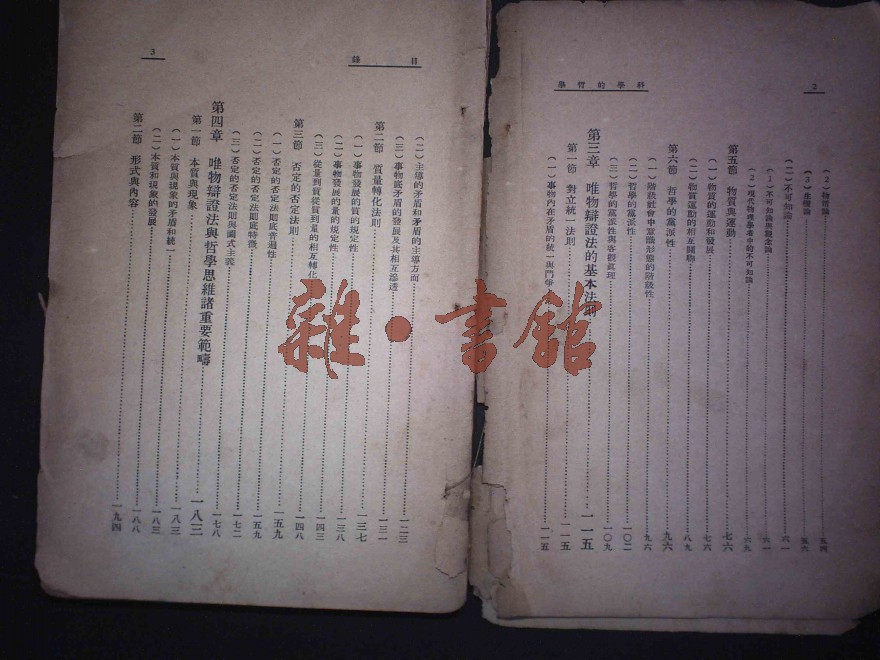 學哲的學科
2
(2) 物活論 五四
(3) 生機論 五六
(二) 不可知論 六一
(1) 不可知論與觀念論 六一
(2) 現代物理學者中的不可知論 六九
第五節 物質與運動 七六
(一) 物質的運動和發展 七六
(二) 物質運動的相互關聯 八九
第六節 哲學的黨派性 九六
(一) 階級社會中意識形態的階級性 九六
(二) 哲學的黨派性 一〇二
(三) 哲學的黨派性與客觀真理 一〇九
第三章 唯物辯證法的基本法則 一一五
第一節 對立統一法則 一一五
(一) 事物內在矛盾的統一與鬥爭 一一五
3
錄目
(二) 主導的矛盾和矛盾的主導方面 一二三
(三) 事物底矛盾的發展及其相互滲透
第二節 質量轉化法則 一三七
(一) 事物發展的質的規定性 一三七
(二) 事物發展的量的規定性 一三八
(三) 從量到質從質到量的相互轉化 一四三
第三節 否定的否定法則 一四八
(一) 否定的否定法則底普遍性
(二) 否定的否定法則底特徵 一五九
(三) 否定的否定法則與圖式主義 一七二
第四章 唯物辯證法與哲學思維諸重要範疇 一八三
第一節 本質與現象 一八三
(一) 本質與現象的矛盾和統一 一八三
(二) 本質和現象的發展 一八八
第二節 形式與內容 一九四
雜·書館